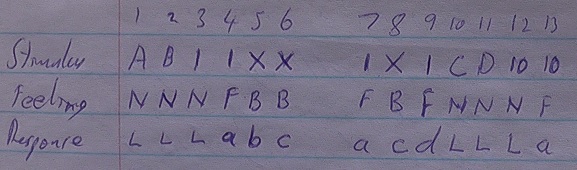 1 2 3 4 5 6 7 8 9 10 11 12 13
Stimulus A B 1 1 X X 1 X 1 C D 10 10
Feeling N N N F B B F B F N N N F
Response L L L a b c a c d L L L a